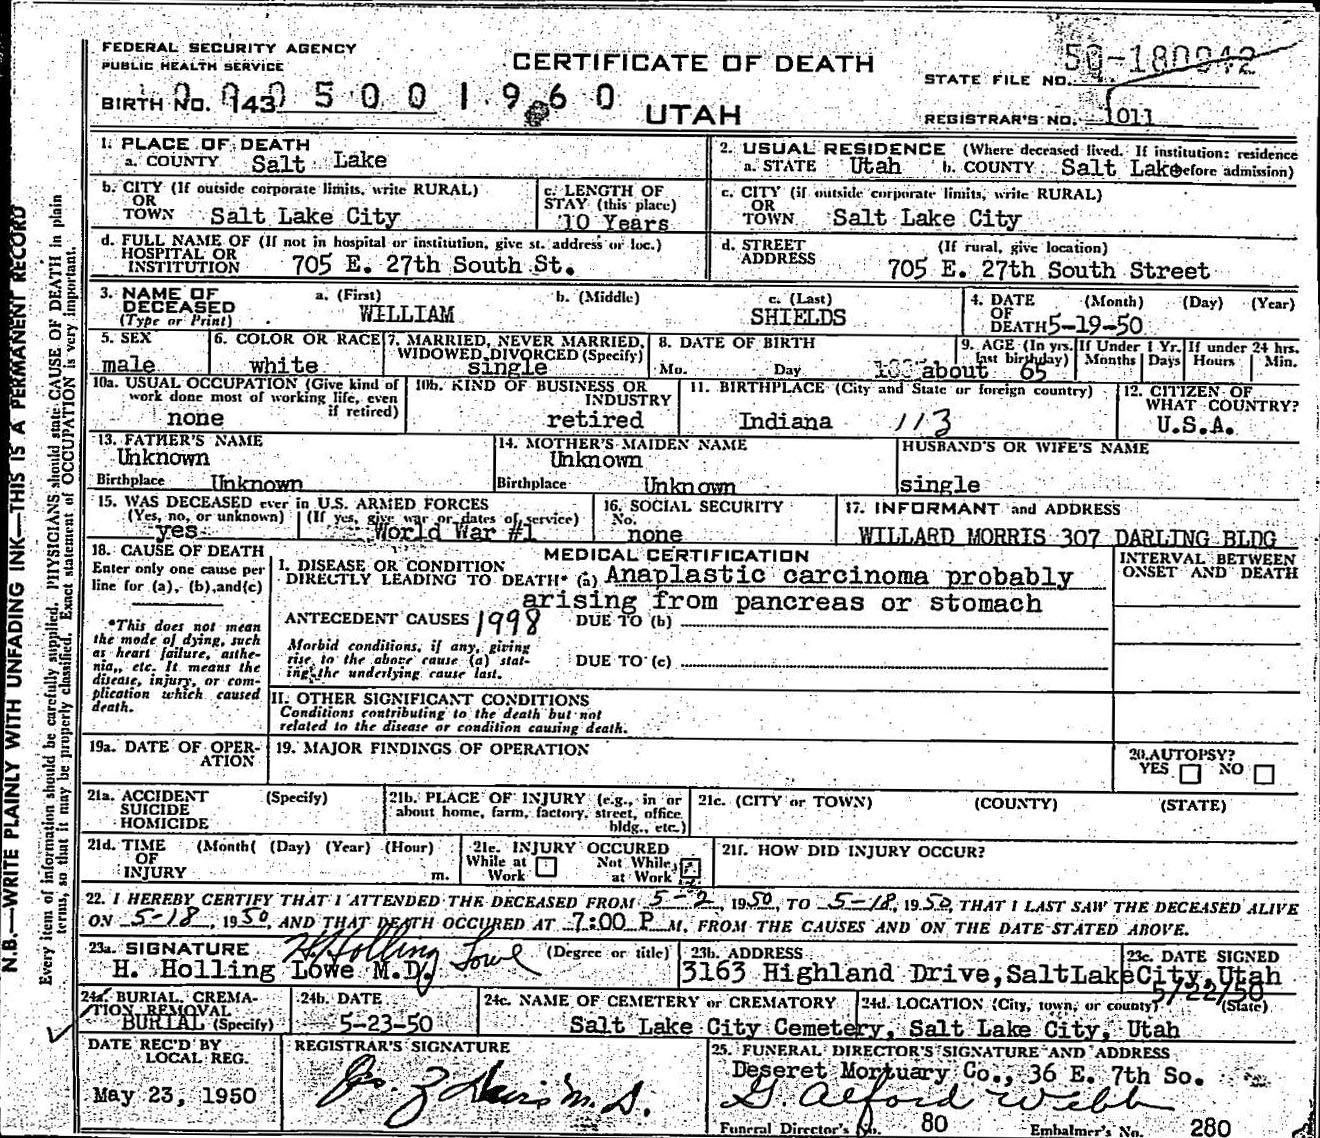 FEDERAL SECURITY AGENCY
PUBLIC HEALTH SERVICE
CERTIFICATE OF DEATH
UTAH
BIRTH NO. 143
STATE FILE NO. 50-180042
REGISTRAR'S NO. 1011
1. PLACE OF DEATH
a. COUNTY Salt Lake
2. USUAL RESIDENCE (Where deceased lived. If institution: residence before admission)
a. STATE Utah b. COUNTY Salt Lake
b. CITY (If outside corporate limits, write RURAL)
OR
TOWN Salt Lake City
c. LENGTH OF
STAY (this place)
10 Years
c. CITY (if outside corporate limits, write RURAL)
OR
TOWN Salt Lake City
d. FULL NAME OF (If not in hospital or institution, give st. address or loc.)
HOSPITAL OR
INSTITUTION 705 E. 27th South St.
d. STREET (If rural, give location)
ADDRESS 705 E. 27th South Street
3. NAME OF
DECEASED
(Type or Print)
a. (First) b. (Middle) c. (Last)
WILLIAM SHIELDS
4. DATE (Month) (Day) (Year)
OF
DEATH 5-19-50
5. SEX
male
6. COLOR OR RACE
white
7. MARRIED, NEVER MARRIED,
WIDOWED, DIVORCED (Specify)
single
8. DATE OF BIRTH
Mo. Day
9. AGE (In yrs. last birthday)
about 65
If Under 1 Yr.
Months Days
If under 24 hrs.
Hours Min.
10a. USUAL OCCUPATION (Give kind of
work done most of working life, even
if retired)
none
10b. KIND OF BUSINESS OR
INDUSTRY
retired
11. BIRTHPLACE (City and State or foreign country)
Indiana 113
12. CITIZEN OF
WHAT COUNTRY?
U.S.A.
13. FATHER'S NAME
Unknown
Birthplace Unknown
14. MOTHER'S MAIDEN NAME
Unknown
Birthplace Unknown
HUSBAND'S OR WIFE'S NAME
single
15. WAS DECEASED ever in U.S. ARMED FORCES
(Yes, no, or unknown) (If yes, give war or dates of service)
yes World War #1
16. SOCIAL SECURITY
No.
none
17. INFORMANT and ADDRESS
WILLARD MORRIS 307 DARLING BLDG
18. CAUSE OF DEATH
Enter only one cause per
line for (a), (b), and (c)
*This does not mean
the mode of dying, such
as heart failure, asthe-
nia, etc. It means the
disease, injury, or com-
plication which caused
death.
MEDICAL CERTIFICATION
INTERVAL BETWEEN
ONSET AND DEATH
I. DISEASE OR CONDITION
DIRECTLY LEADING TO DEATH* (a) Anaplastic carcinoma probably
arising from pancreas or stomach
ANTECEDENT CAUSES 1998 DUE TO (b)
Morbid conditions, if any, giving
rise to the above cause (a) stat-
ing the underlying cause last.
DUE TO (c)
II. OTHER SIGNIFICANT CONDITIONS
Conditions contributing to the death but not
related to the disease or condition causing death.
19a. DATE OF OPER-
ATION
19. MAJOR FINDINGS OF OPERATION
20. AUTOPSY?
YES NO
21a. ACCIDENT (Specify)
SUICIDE
HOMICIDE
21b. PLACE OF INJURY (e.g., in or
about home, farm, factory, street, office
bldg., etc.)
21c. (CITY or TOWN) (COUNTY) (STATE)
21d. TIME (Month( (Day) (Year) (Hour)
OF
INJURY m.
21e. INJURY OCCURED
While at Work Not While at Work
21f. HOW DID INJURY OCCUR?
22. I HEREBY CERTIFY THAT I ATTENDED THE DECEASED FROM 5-2, 1950, TO 5-18, 1950, THAT I LAST SAW THE DECEASED ALIVE
ON 5-18, 1950, AND THAT DEATH OCCURED AT 7:00 P M, FROM THE CAUSES AND ON THE DATE STATED ABOVE.
23a. SIGNATURE H. Holling Lowe (Degree or title)
H. Holling Lowe M.D.
23b. ADDRESS
3163 Highland Drive, SaltLakeCity, Utah
23c. DATE SIGNED
5/22/50
24a. BURIAL, CREMA-
TION REMOVAL
BURIAL (Specify)
24b. DATE
5-23-50
24c. NAME OF CEMETERY or CREMATORY
24d. LOCATION (City, town, or county) (State)
Salt Lake City Cemetery, Salt Lake City, Utah
DATE REC'D BY
LOCAL REG.
May 23, 1950
REGISTRAR'S SIGNATURE
25. FUNERAL DIRECTOR'S SIGNATURE AND ADDRESS
Deseret Mortuary Co., 36 E. 7th So.
G. Alford Webb
Funeral Director's No. 80 Embalmer's No. 280
N.B.—WRITE PLAINLY WITH UNFADING INK—THIS IS A PERMANENT RECORD
Every item of information should be carefully supplied. PHYSICIANS should state CAUSE OF DEATH in plain
terms, so that it may be properly classified. Exact statement of OCCUPATION is very important.